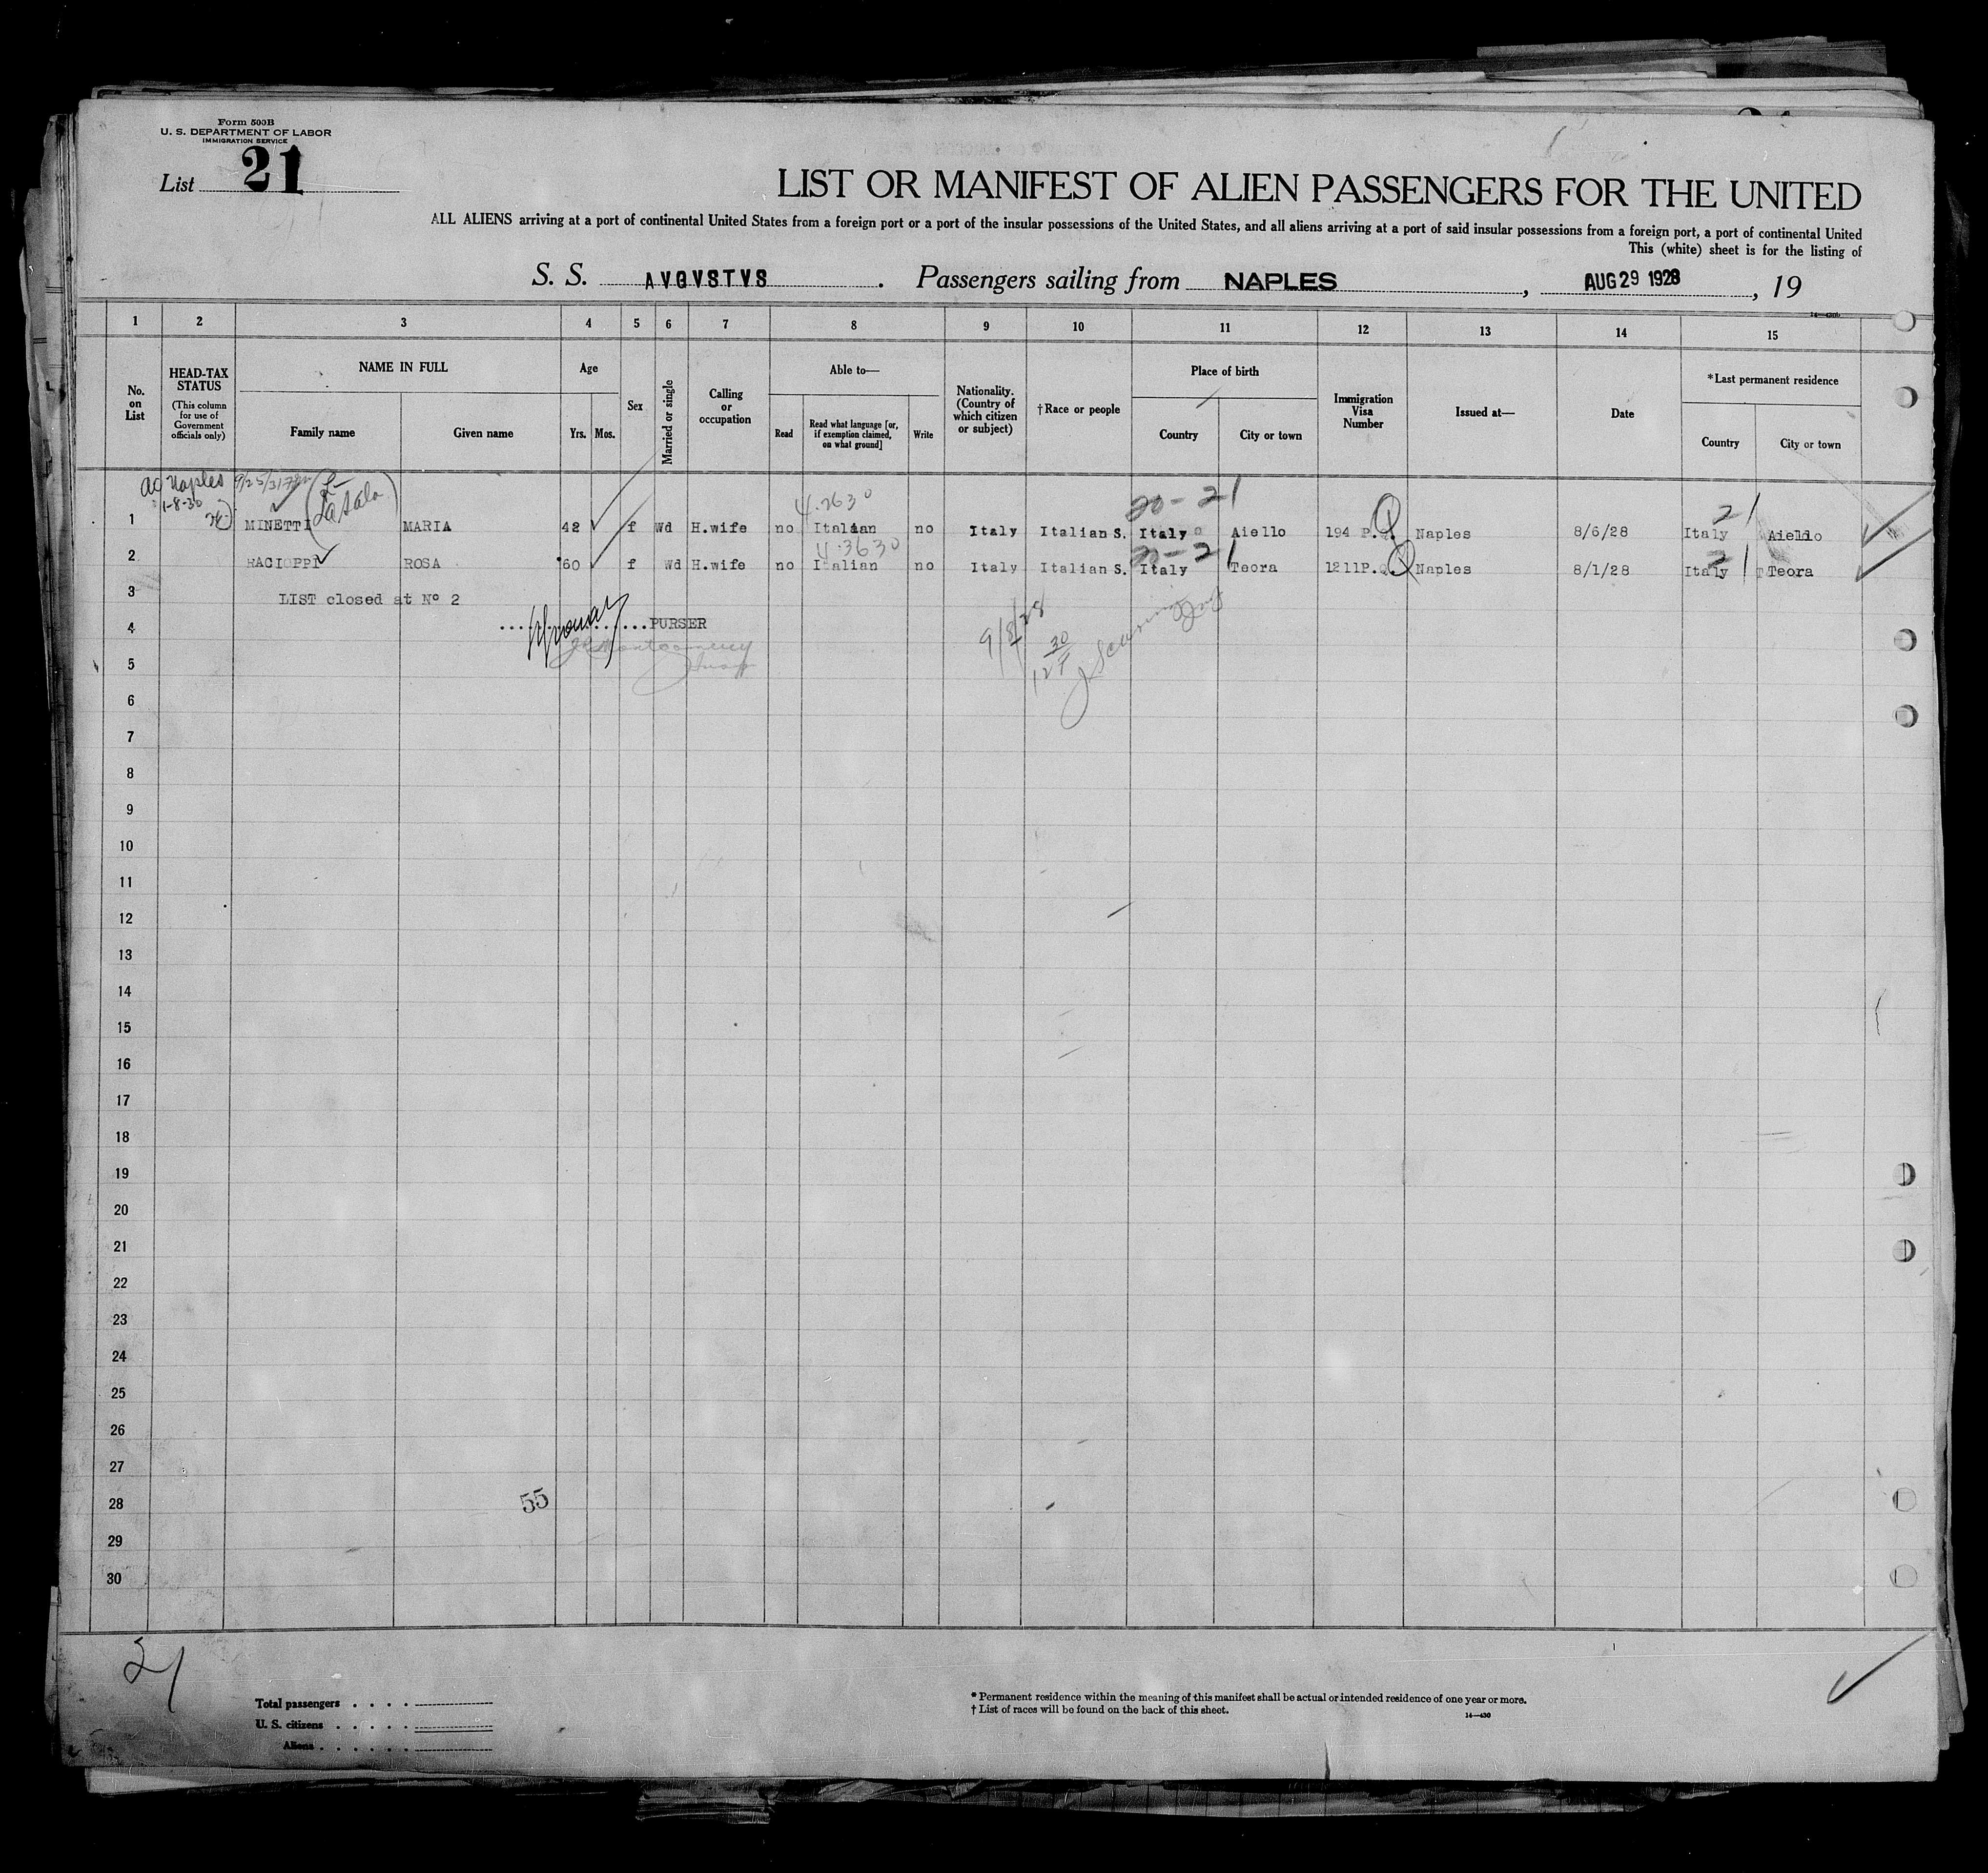 Form 500B
U. S. DEPARTMENT OF LABOR
IMMIGRATION SERVICE
List 21
LIST OR MANIFEST OF ALIEN PASSENGERS FOR THE UNITED
ALL ALIENS arriving at a port of continental United States from a foreign port or a port of the insular possessions of the United States, and all aliens arriving at a port of said insular possessions from a foreign port, a port of continental United
This (white) sheet is for the listing of
S. S. AVGVSTVS . Passengers sailing from NAPLES , AUG 29 1928 , 19
1 2 3 4 5 6 7 8 9 10 11 12 13 14 15
No. on List
HEAD-TAX STATUS (This column for use of Government officials only)
NAME IN FULL
Family name Given name
Age
Yrs. Mos.
Sex
Married or single
Calling or occupation
Able to—
Read
Read what language [or, if exemption claimed, on what ground]
Write
Nationality. (Country of which citizen or subject)
†Race or people
Place of birth
Country City or town
Immigration Visa Number
Issued at—
Date
*Last permanent residence
Country City or town
Naples 9/25/31
1-8-30
(LaSala)
4.2630 20-21 21
1 MINETTI MARIA 42 f Wd H.wife no Italian no Italy Italian S. Italy Aiello 194 P.Q. Naples 8/6/28 Italy Aiello
4.3630 20-21 21
2 RACIOPPI ROSA 60 f Wd H.wife no Italian no Italy Italian S. Italy Teora 1211P.Q. Naples 8/1/28 Italy Teora
3 LIST closed at Nº 2
4 PURSER
J Montgomery
9/8/28
5
6
7
8
9
10
11
12
13
14
15
16
17
18
19
20
21
22
23
24
25
26
27
28 55
29
30
21
Total passengers . . . .
U. S. citizens . . . . .
Aliens . . . . . .
* Permanent residence within the meaning of this manifest shall be actual or intended residence of one year or more.
† List of races will be found on the back of this sheet.
14—430